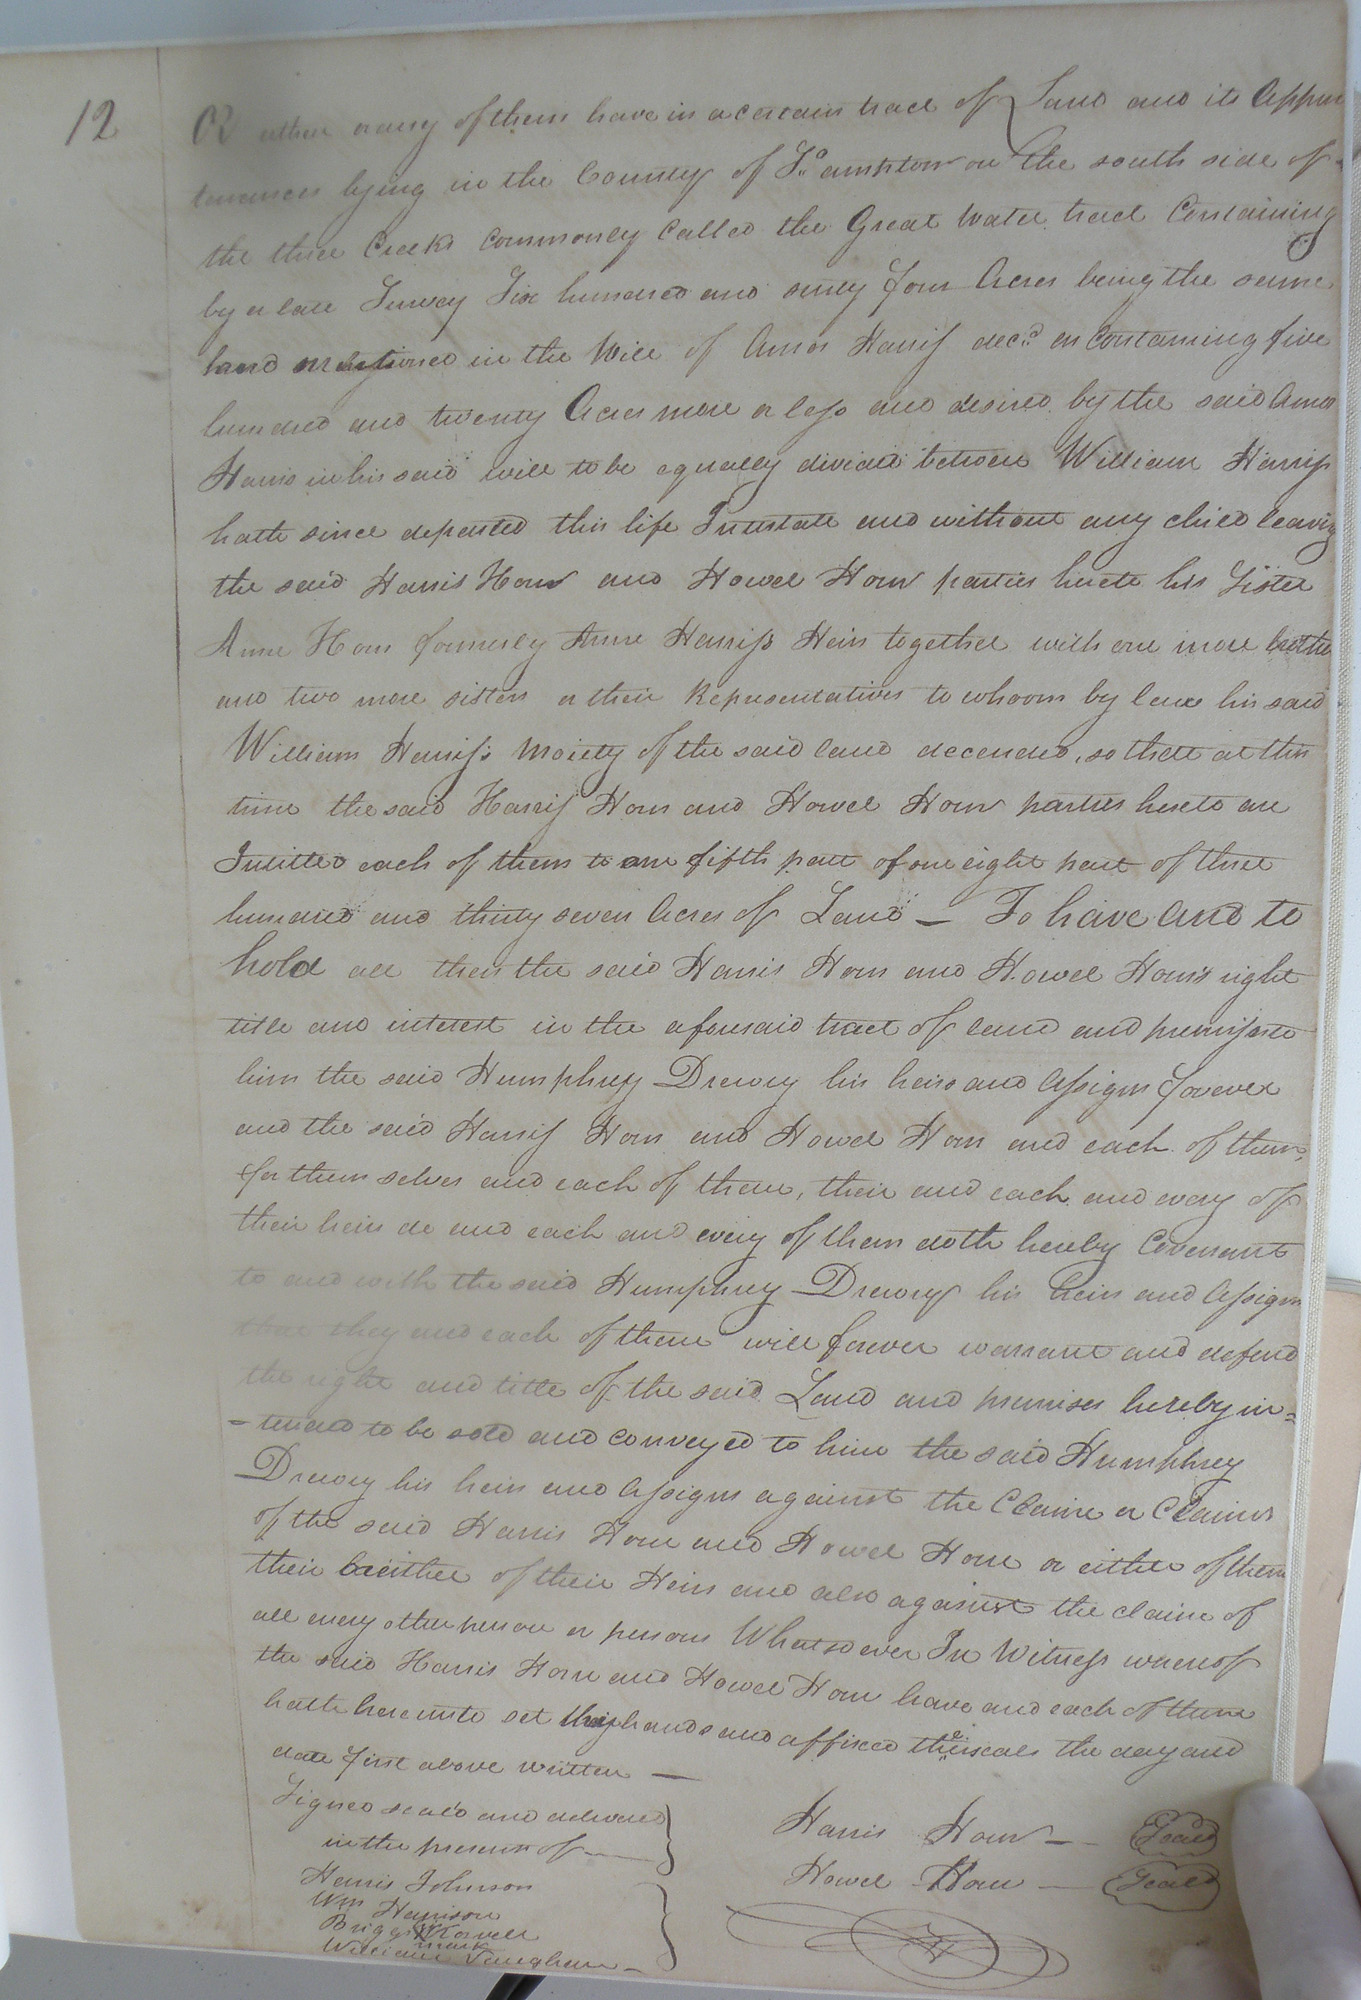 12
Or either or any of them have in a certain tract of Land and its Appur
tenances lying in the County of So.ampton on the south side of
the three Creeks commonly called the Great Water tract Containing
by a late Survey Six hundred and seventy four Acres being the same
land mentioned in the Will of Amos Harriss decd. as containing five
hundred and twenty Acres more or less and desired by the said Amos
Harris in his said will to be equally divided between William Harriss
hath since departed this life Intestate and without any child leaving
the said Harris Horn and Howel Horn parties hereto his Sister
Anne Horn formerly Anne Harriss Heirs together with one more brother
and two more sisters or their Representatives to whoom by law his said
William Harriss moiety of the said land decended, so that at this
time the said Harriss Horn and Howel Horn parties hereto are
Intitled each of them to one fifth part of one eight part of three
hundred and thirty seven Acres of Land — To have and to
hold all their the said Harris Horn and Howel Horn's right
title and interest in the aforesaid tract of land and premises to
him the said Humphrey Drewry his heirs and Assigns forever
and the said Harriss Horn and Howel Horn and each of them,
for them selves and each of them, their and each and every of
their heirs do and each and every of them doth hereby Covenant
to and with the said Humphrey Drewry his heirs and Assigns
that they and each of them will forever warrant and defend
the right and title of the said Land and premises hereby in=
-tended to be sold and conveyed to him the said Humphrey
Drewry his heirs and Assigns against the Claim or Claims
of the said Harris Horn and Howel Horn or either of them
their or either of their Heirs and also against the claim of
all every other person or persons Whatsoever In Witness whereof
the said Harris Horn and Howel Horn have and each of them
hath hereunto set their hands and affixed their seals the day and
date first above written —
Signed seal'd and delivered
in the presents of —
Harris Horn — Seald
Howel Horn — Seald
Harris Johnson
Wm Harrison
Briggs Norvell
mark
William Vaughan —